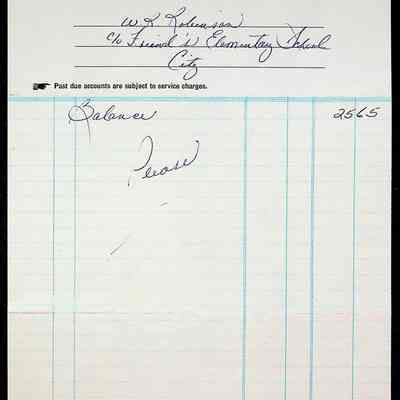 W K Robinson
c/o Friend's Elementary School
City
Past due accounts are subject to service charges.
Balance 2565
Please